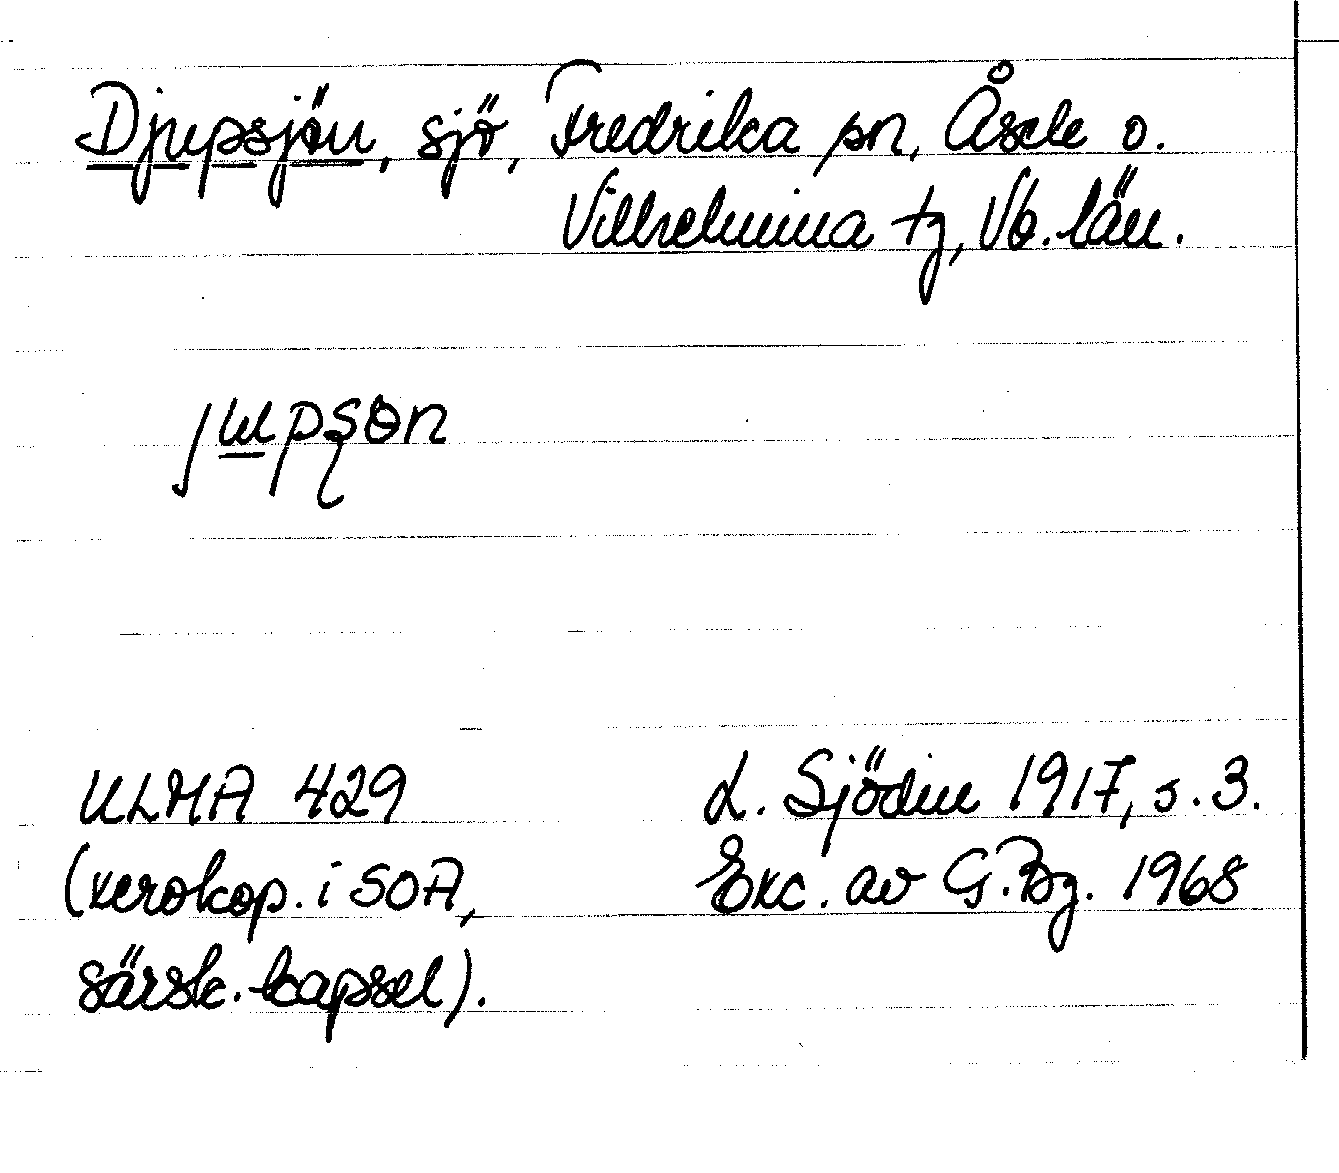 Djupsjön, sjö, Fredrika sn, Åsele o.
Vilhelmina tg, Vb. län.
ULMA 429
(xerokop. i SOA,
särsk. kapsel).
L. Sjödin 1917, s. 3.
Exc. av G. Bg. 1968